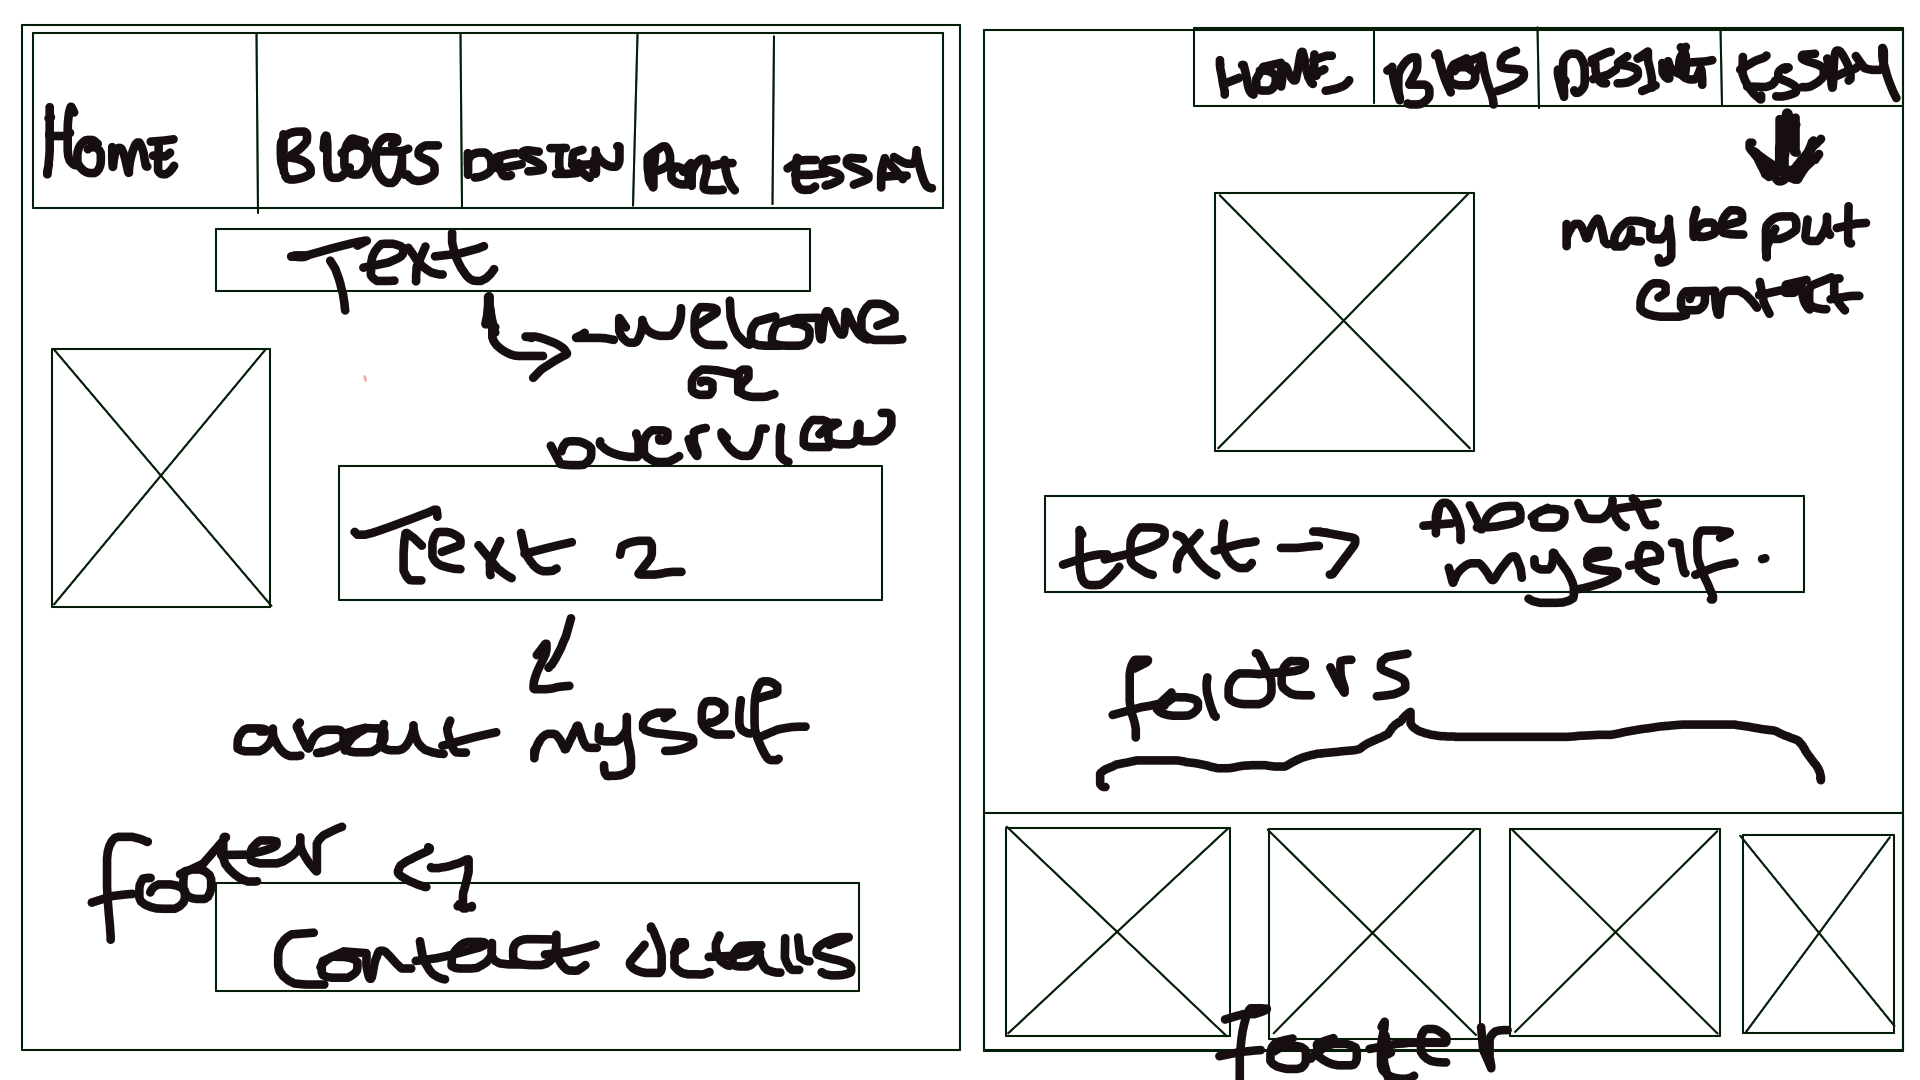 HOME BLOGS DESIGN ART ESSAY
Text
- welcome
or
overview
Text 2
about myself
footer
Contact details
HOME Blogs DESIGN ESSAY
maybe put
contact
text → About
myself.
folders
footer